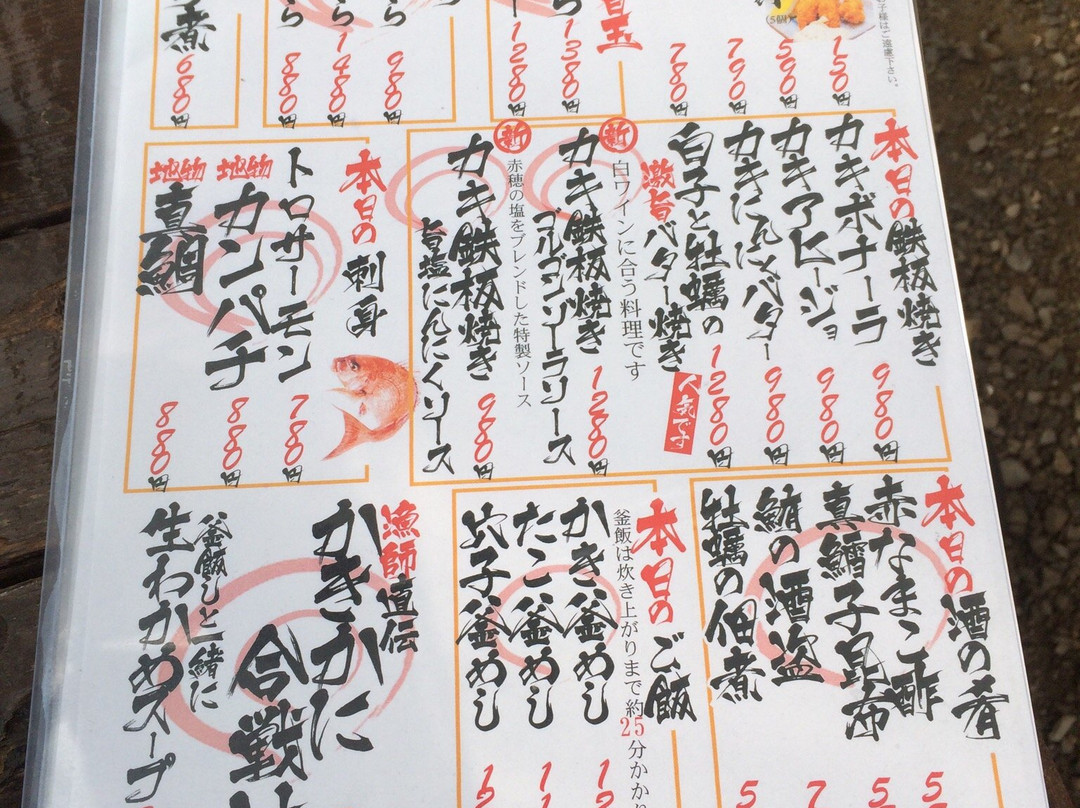 お子様はご遠慮下さい。
150円
590円
790円
780円
1380円
1280円
980円
1480円
880円
煮
680円
本日の鉄板焼き
カキボナーラ
980円
カキアヒージョ
980円
カキにんにくバター
980円
白子と牡蠣の
激旨バター焼き
人気です
1280円
白ワインに合う料理です
新
カキ鉄板焼き
ゴルゴンゾーラソース
1280円
赤穂の塩をブレンドした特製ソース
新
カキ鉄板焼き
旨塩にんにくソース
980円
本日の刺身
トロサーモン
780円
地物
カンパチ
880円
地物
真鯛
880円
本日の酒の肴
赤なまこ酢
真鱈子昆布
鮪の酒盗
牡蠣の佃煮
本日のご飯
釜飯は炊き上がりまで約25分かかり
かき釜めし
たこ釜めし
穴子釜めし
漁師直伝
かきかに
合戦
釜飯と一緒に
生わかめスープ